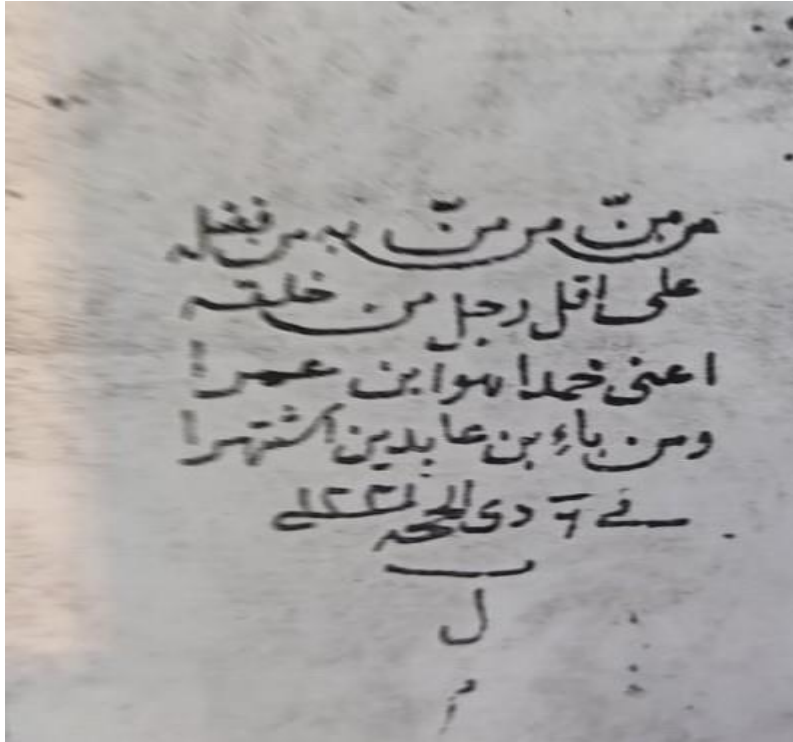 من منّ من منّ به من فضله
على اقل رجل من خلقه
اعنى محمدا هوا بن عمرا
ومن باء بن عابدين اشتهرا
في ٦ ذى الحجة ١٢٢١
ل